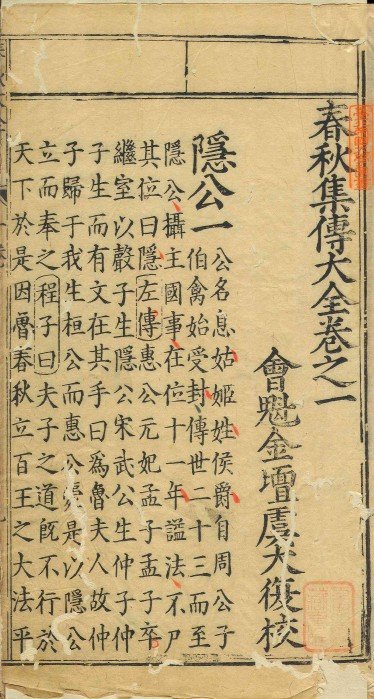 春秋集傳大全卷之一
會魁金壇虞大復校
隱公一
公名息姑姬姓侯爵自周公子
伯禽始受封傳世二十三而至
隱公攝主國事在位十一年謚法不尸
其位曰隱左傳惠公元妃孟子孟子卒
繼室以聲子生隱公宋武公生仲子仲
子生而有文在其手曰爲魯夫人故仲
子歸于我生桓公而惠公薨是以隱公
立而奉之程子曰夫子之道旣不行於
天下於是因魯春秋立百王之大法平